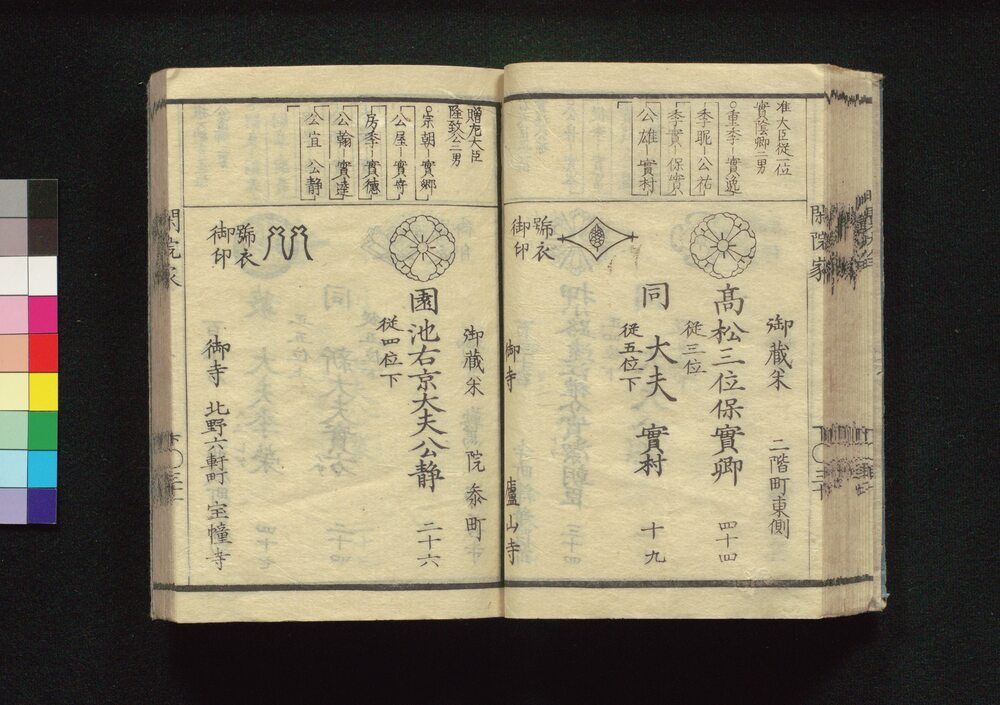 准大臣従一位
實陰卿二男
○重季─實逸
季昵─公祐
季實─保實
公雄─實村
御蔵米 二階町東側
髙松三位保實卿 四十四
従三位
同 大夫 實村 十九
従五位下
號衣
御印
御寺 廬山寺
閑院家
○三十
贈左大臣
隆致公二男
○宗朝─實郷
公屋─實守
房季─實徳
公翰─實達
公宜 公静
御蔵米 院参町
園池右京大夫公静 二十六
従四位下
號衣
御印
御寺 北野六軒町 宝幢寺
閑院家